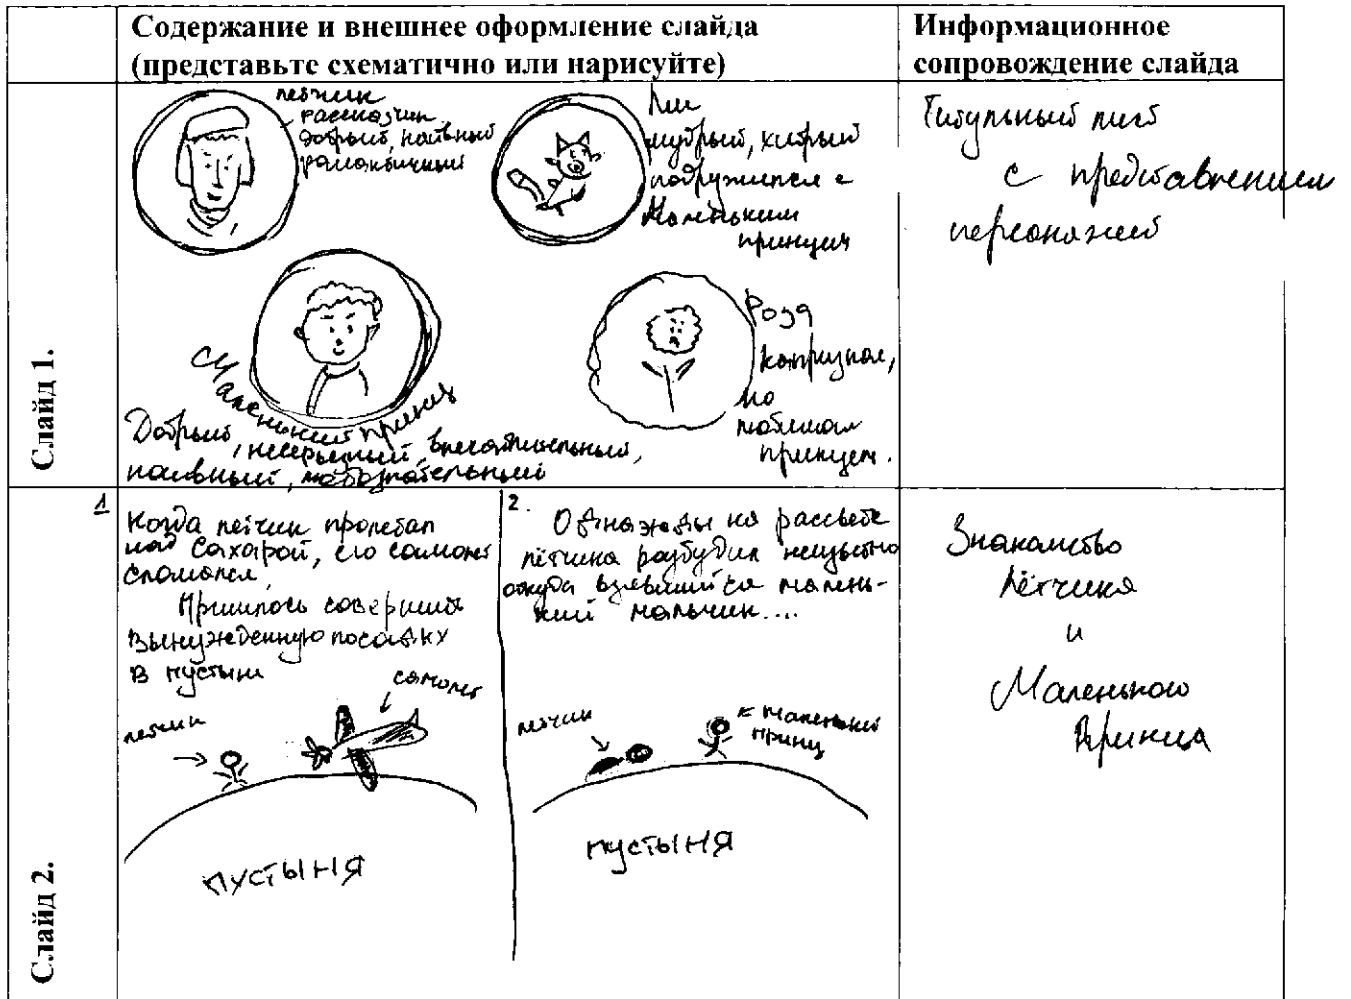 Содержание и внешнее оформление слайда
(представьте схематично или нарисуйте)
Информационное
сопровождение слайда
Слайд 1.
летчик
рассказчик
добрый, наивный
романтичный
Лис
мудрый, хитрый
подружился с
Маленьким
принцем
Маленький принц
Добрый, несерьезный, впечатлительный,
наивный, любознательный
Роза
капризная,
но
любимая
принцем.
Титульный лист
с представлением
персонажей
Слайд 2.
1
Когда летчик пролетал
над Сахарой, его самолет
сломался.
Пришлось совершить
вынужденную посадку
в пустыне
летчик
самолет
ПУСТЫНЯ
2.
Однажды на рассвете
лётчика разбудил неизвестно
откуда взявшийся малень-
кий мальчик....
летчик
маленький
принц
ПУСТЫНЯ
Знакомство
Лётчика
и
Маленького
Принца